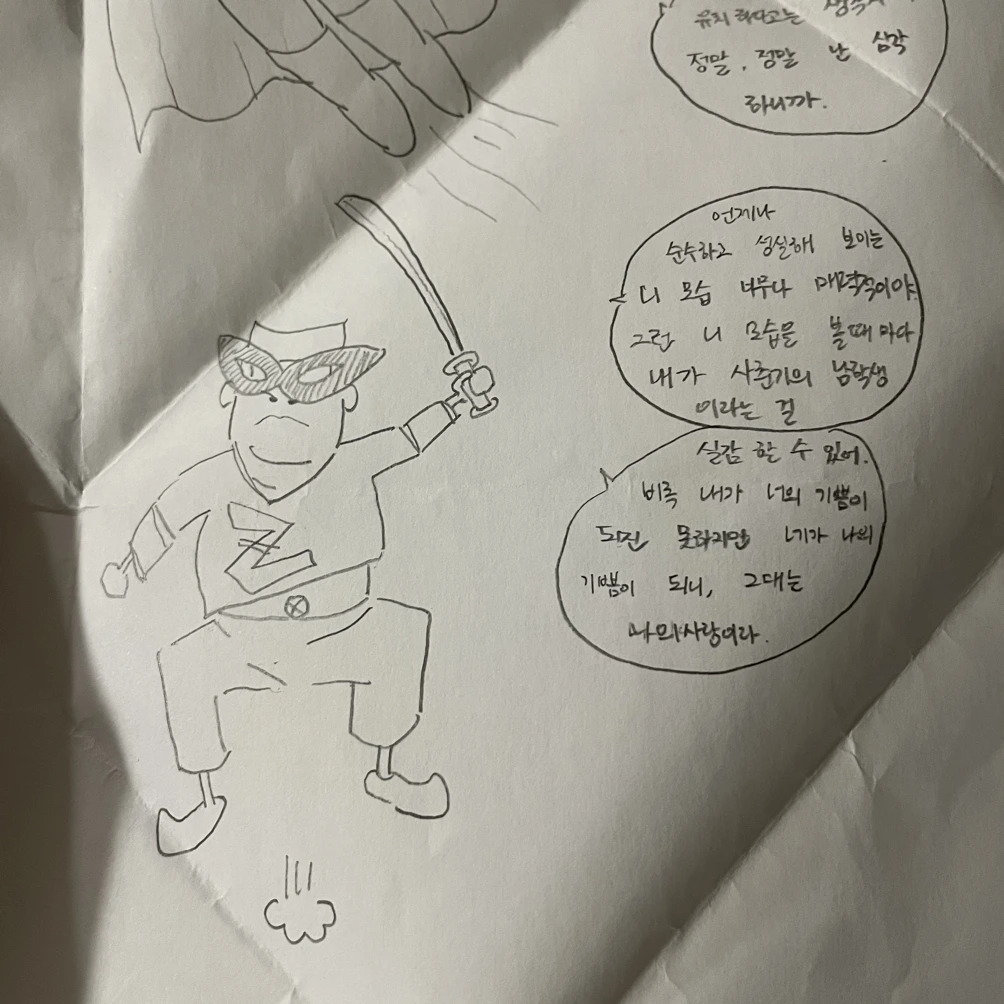 유치 하다고는
정말, 정말 난 심각
하니까.
언제나
순수하고 성실해 보이는
니 모습 너무나 매력적이야.
그런 니 모습을 볼때 마다
내가 사춘기의 남학생
이라는 걸
실감 할 수 있어.
비록 내가 너의 기쁨이
되진 못하지만 네가 나의
기쁨이 되니, 그대는
나의 사랑이라.
Z